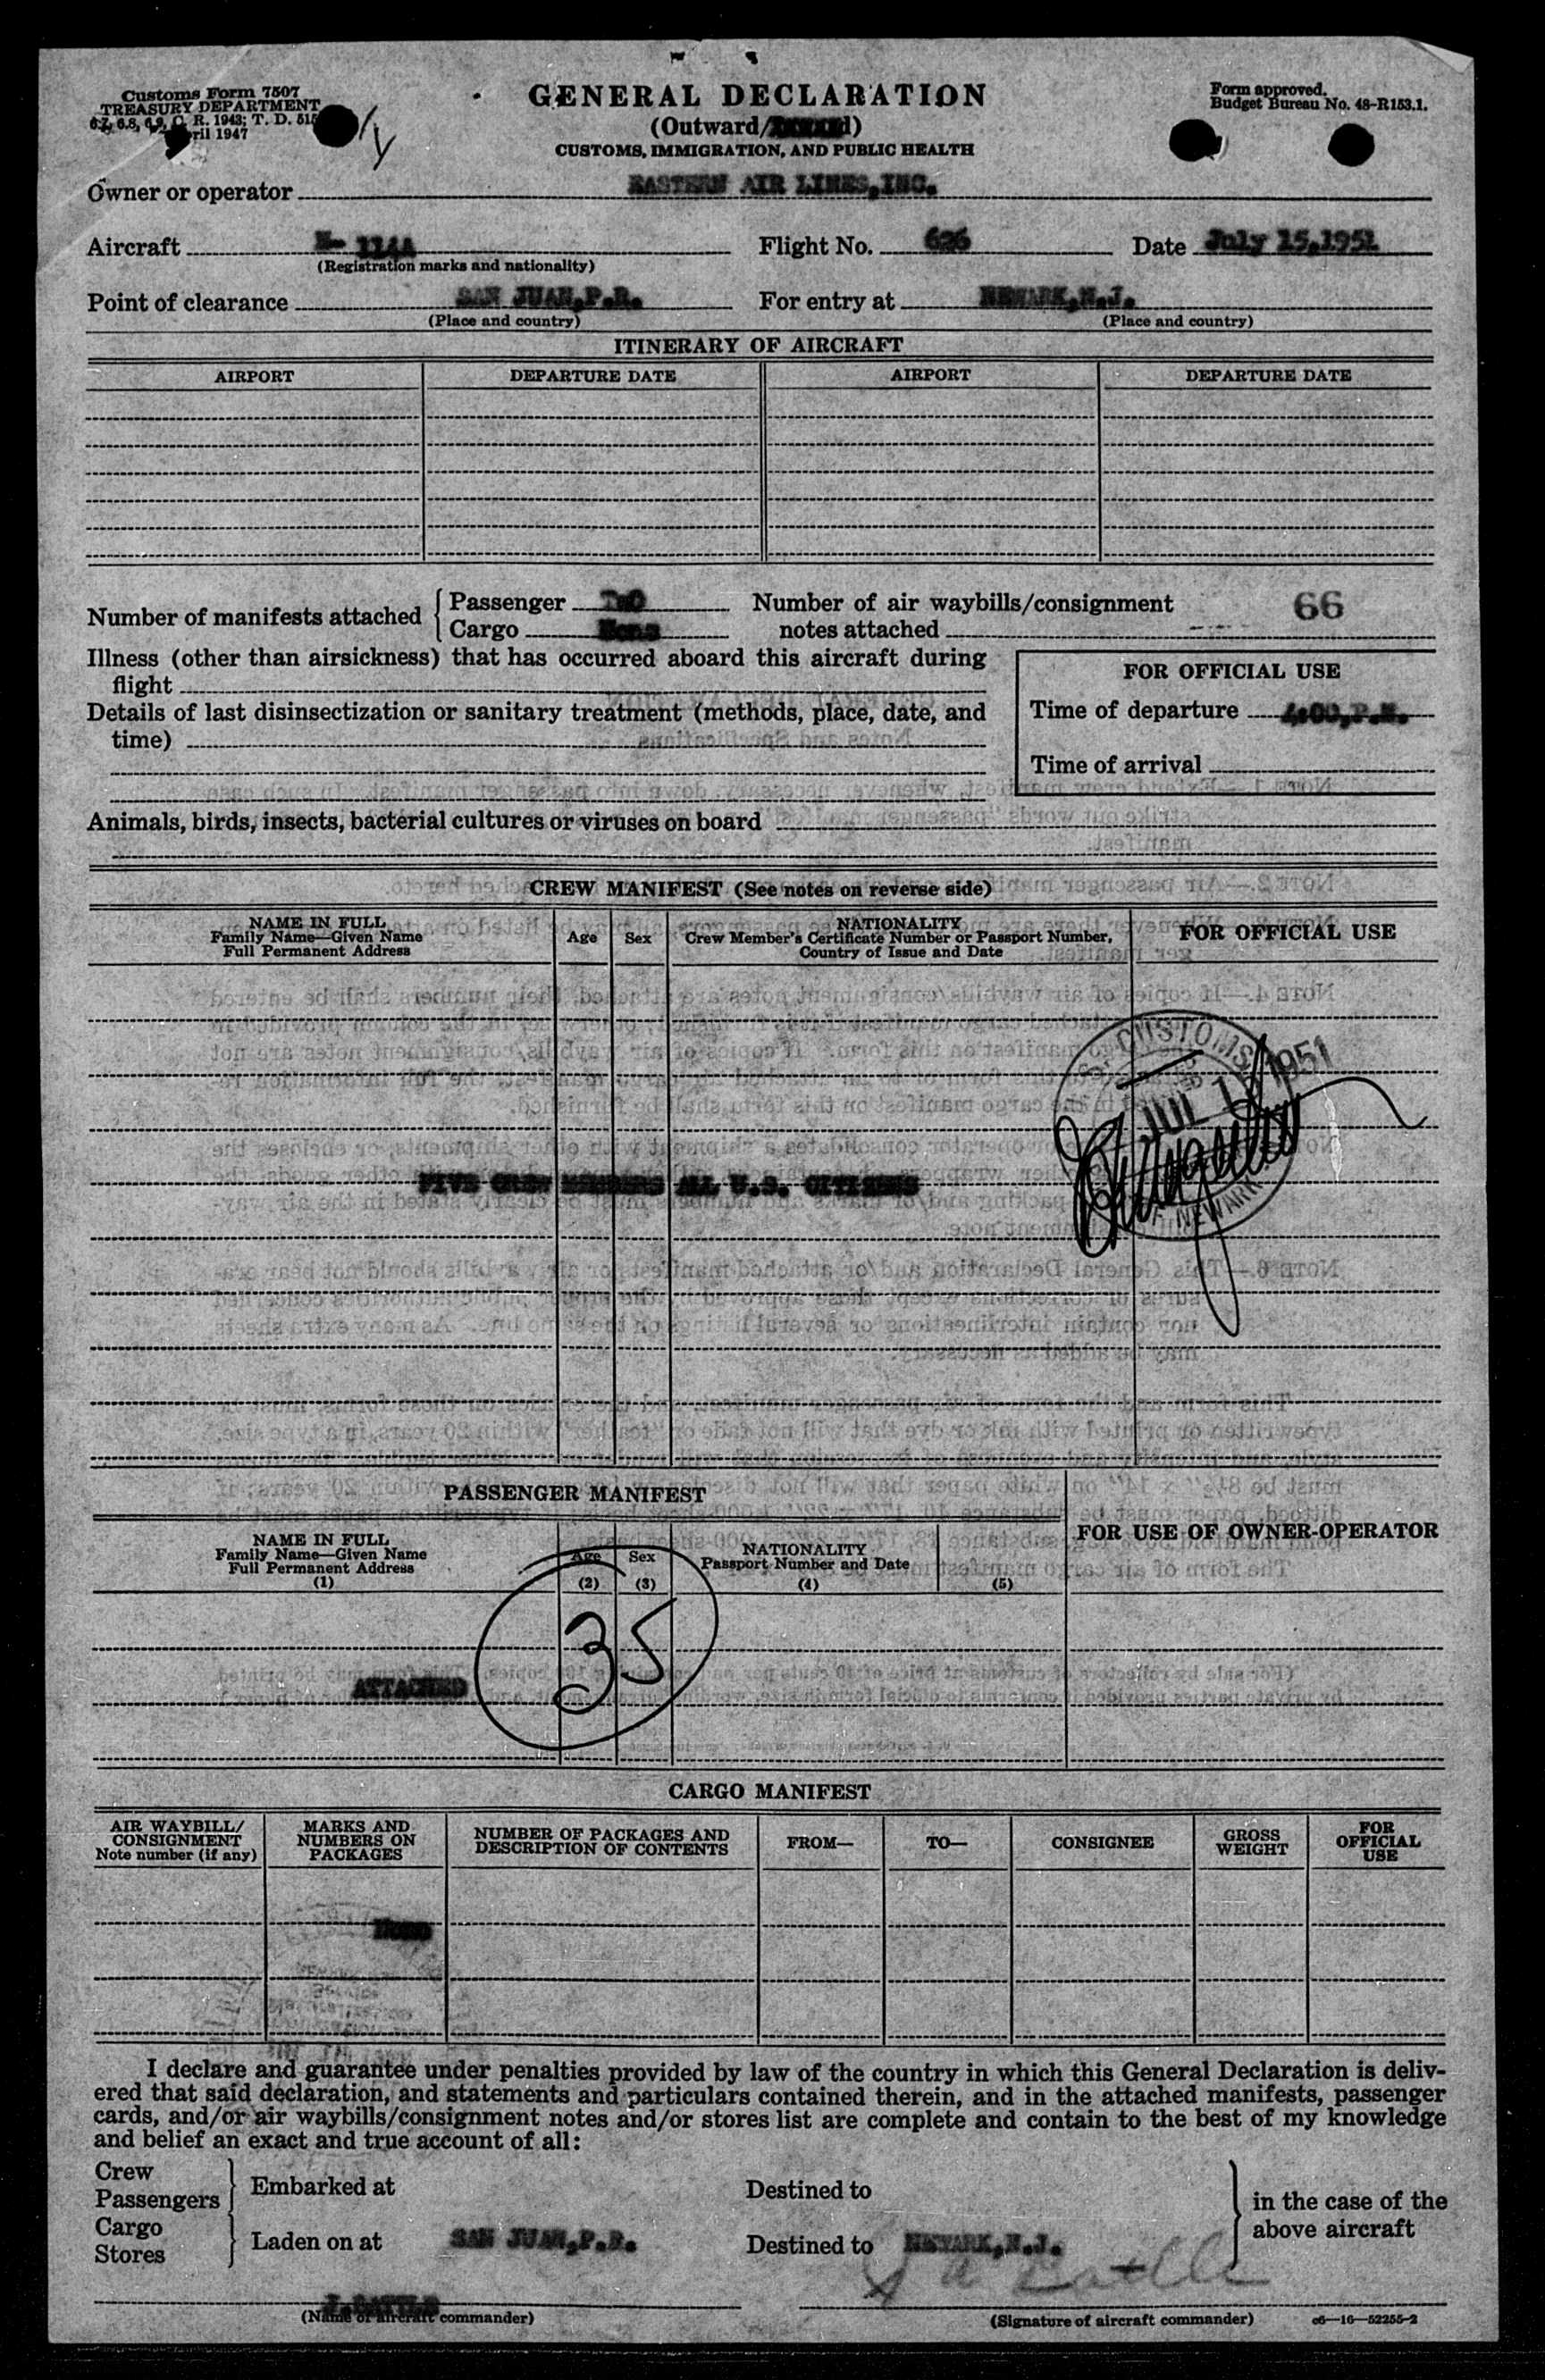 Customs Form 7507
TREASURY DEPARTMENT
6.7, 6.8, 6.9, C. R. 1943; T. D.
April 1947
GENERAL DECLARATION
(Outward/
CUSTOMS, IMMIGRATION, AND PUBLIC HEALTH
Form approved.
Budget Bureau No. 48-R153.1.
Owner or operator EASTERN AIR LINES,INC.
Aircraft N- 114A Flight No. 626 Date July 15,1951
(Registration marks and nationality)
Point of clearance SAN JUAN,P.R. For entry at NEWARK,N.J.
(Place and country) (Place and country)
ITINERARY OF AIRCRAFT
AIRPORT DEPARTURE DATE AIRPORT DEPARTURE DATE
Number of manifests attached { Passenger TWO
Cargo None
Number of air waybills/consignment
notes attached 66
Illness (other than airsickness) that has occurred aboard this aircraft during
flight
Details of last disinsectization or sanitary treatment (methods, place, date, and
time)
FOR OFFICIAL USE
Time of departure 4:00,P.M.
Time of arrival
Animals, birds, insects, bacterial cultures or viruses on board
CREW MANIFEST (See notes on reverse side)
NAME IN FULL
Family Name—Given Name
Full Permanent Address
Age
Sex
NATIONALITY
Crew Member's Certificate Number or Passport Number,
Country of Issue and Date
FOR OFFICIAL USE
CUSTOMS
JUL 15 1951
NEWARK
FIVE CREW MEMBERS ALL U.S. CITIZENS
PASSENGER MANIFEST
NAME IN FULL
Family Name—Given Name
Full Permanent Address
(1)
Age
(2)
Sex
(3)
NATIONALITY
Passport Number and Date
(4) (5)
FOR USE OF OWNER-OPERATOR
35
ATTACHED
CARGO MANIFEST
AIR WAYBILL/
CONSIGNMENT
Note number (if any)
MARKS AND
NUMBERS ON
PACKAGES
NUMBER OF PACKAGES AND
DESCRIPTION OF CONTENTS
FROM—
TO—
CONSIGNEE
GROSS
WEIGHT
FOR
OFFICIAL
USE
None
I declare and guarantee under penalties provided by law of the country in which this General Declaration is deliv-
ered that said declaration, and statements and particulars contained therein, and in the attached manifests, passenger
cards, and/or air waybills/consignment notes and/or stores list are complete and contain to the best of my knowledge
and belief an exact and true account of all:
Crew
Passengers } Embarked at Destined to
Cargo
Stores } Laden on at SAN JUAN,P.R. Destined to NEWARK,N.J.
in the case of the
above aircraft
(Name of aircraft commander) (Signature of aircraft commander) c6—16—52255-2